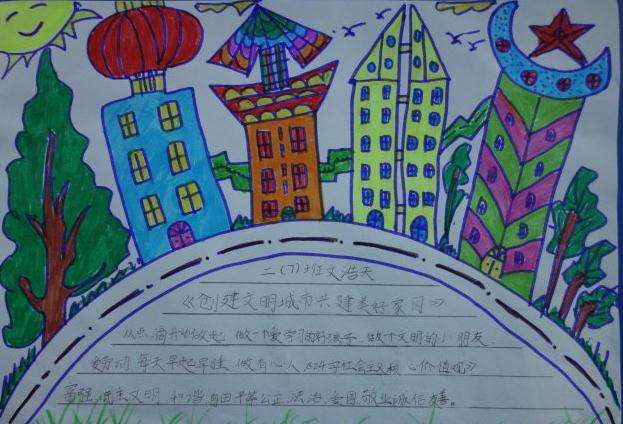 二(7)班文浩天
《创建文明城市共建美好家园》
从点滴开始做起,做一个爱学习的好孩子,做个文明的小朋友,
爱劳动,每天早起早睡,做有心人,24字社会主义核心价值观》
富强、民主文明 和谐自由平等公正,法治,爱国,敬业诚信友善。